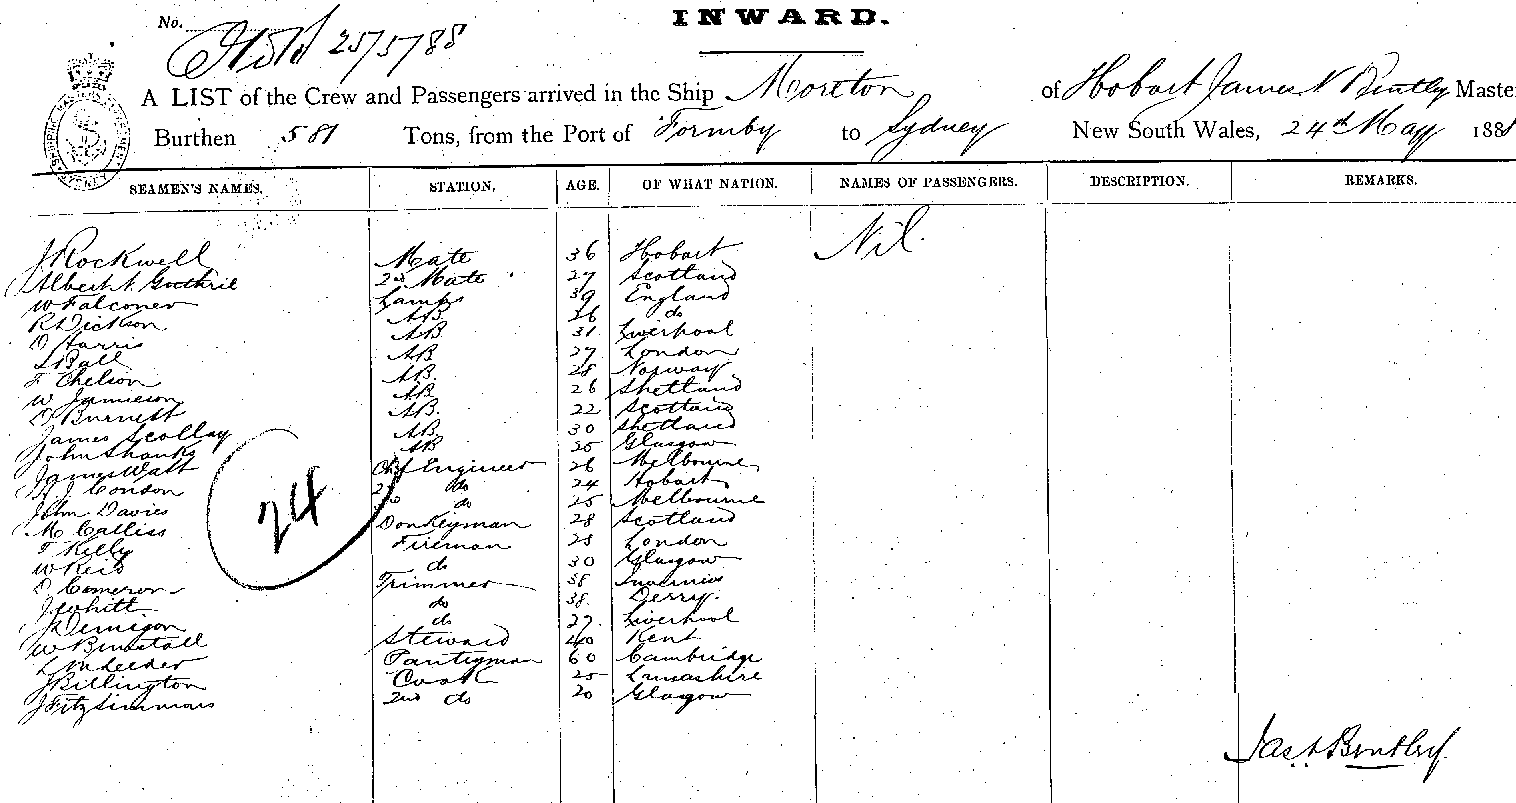 INWARD.
No. 25/5/88
A LIST of the Crew and Passengers arrived in the Ship Moreton of Hobart James N Bentley Master
Burthen 581 Tons, from the Port of Formby to Sydney New South Wales, 24th May 188
SEAMEN'S NAMES. STATION. AGE. OF WHAT NATION. NAMES OF PASSENGERS. DESCRIPTION. REMARKS.
J Rockwell Mate 36 Hobart Nil.
Albert N. Guthrie 2nd Mate 27 Scotland
W Falconer Lamps 39 England
R Dickson AB 26 do
D Harris AB 31 Liverpool
S Ball AB 27 London
F Chelson AB 28 Norway
W Jamieson AB 26 Shetland
D Burnett AB. 22 Scotland
James Scollay AB 30 Shetland
John Shanks AB 25 Glasgow
James Watt Chf Engineer 26 Melbourne
J. Conson 2nd do 24 Hobart
John Davies do 25 Melbourne
M Calliss Donkeyman 28 Scotland
T Kelly Fireman 28 London
W Reid do 30 Glasgow
D Cameron Trimmer 38 Inverniss
J. White do 38. Derry.
J Dernigon do 27. Liverpool
W Bunstall Steward 40 Kent
Leeder Pantryman 60 Cambridge
J Billington Cook 25 Lancashire
J Fitzsimmons 2nd do 20 Glasgow
24
Jas N Bentley